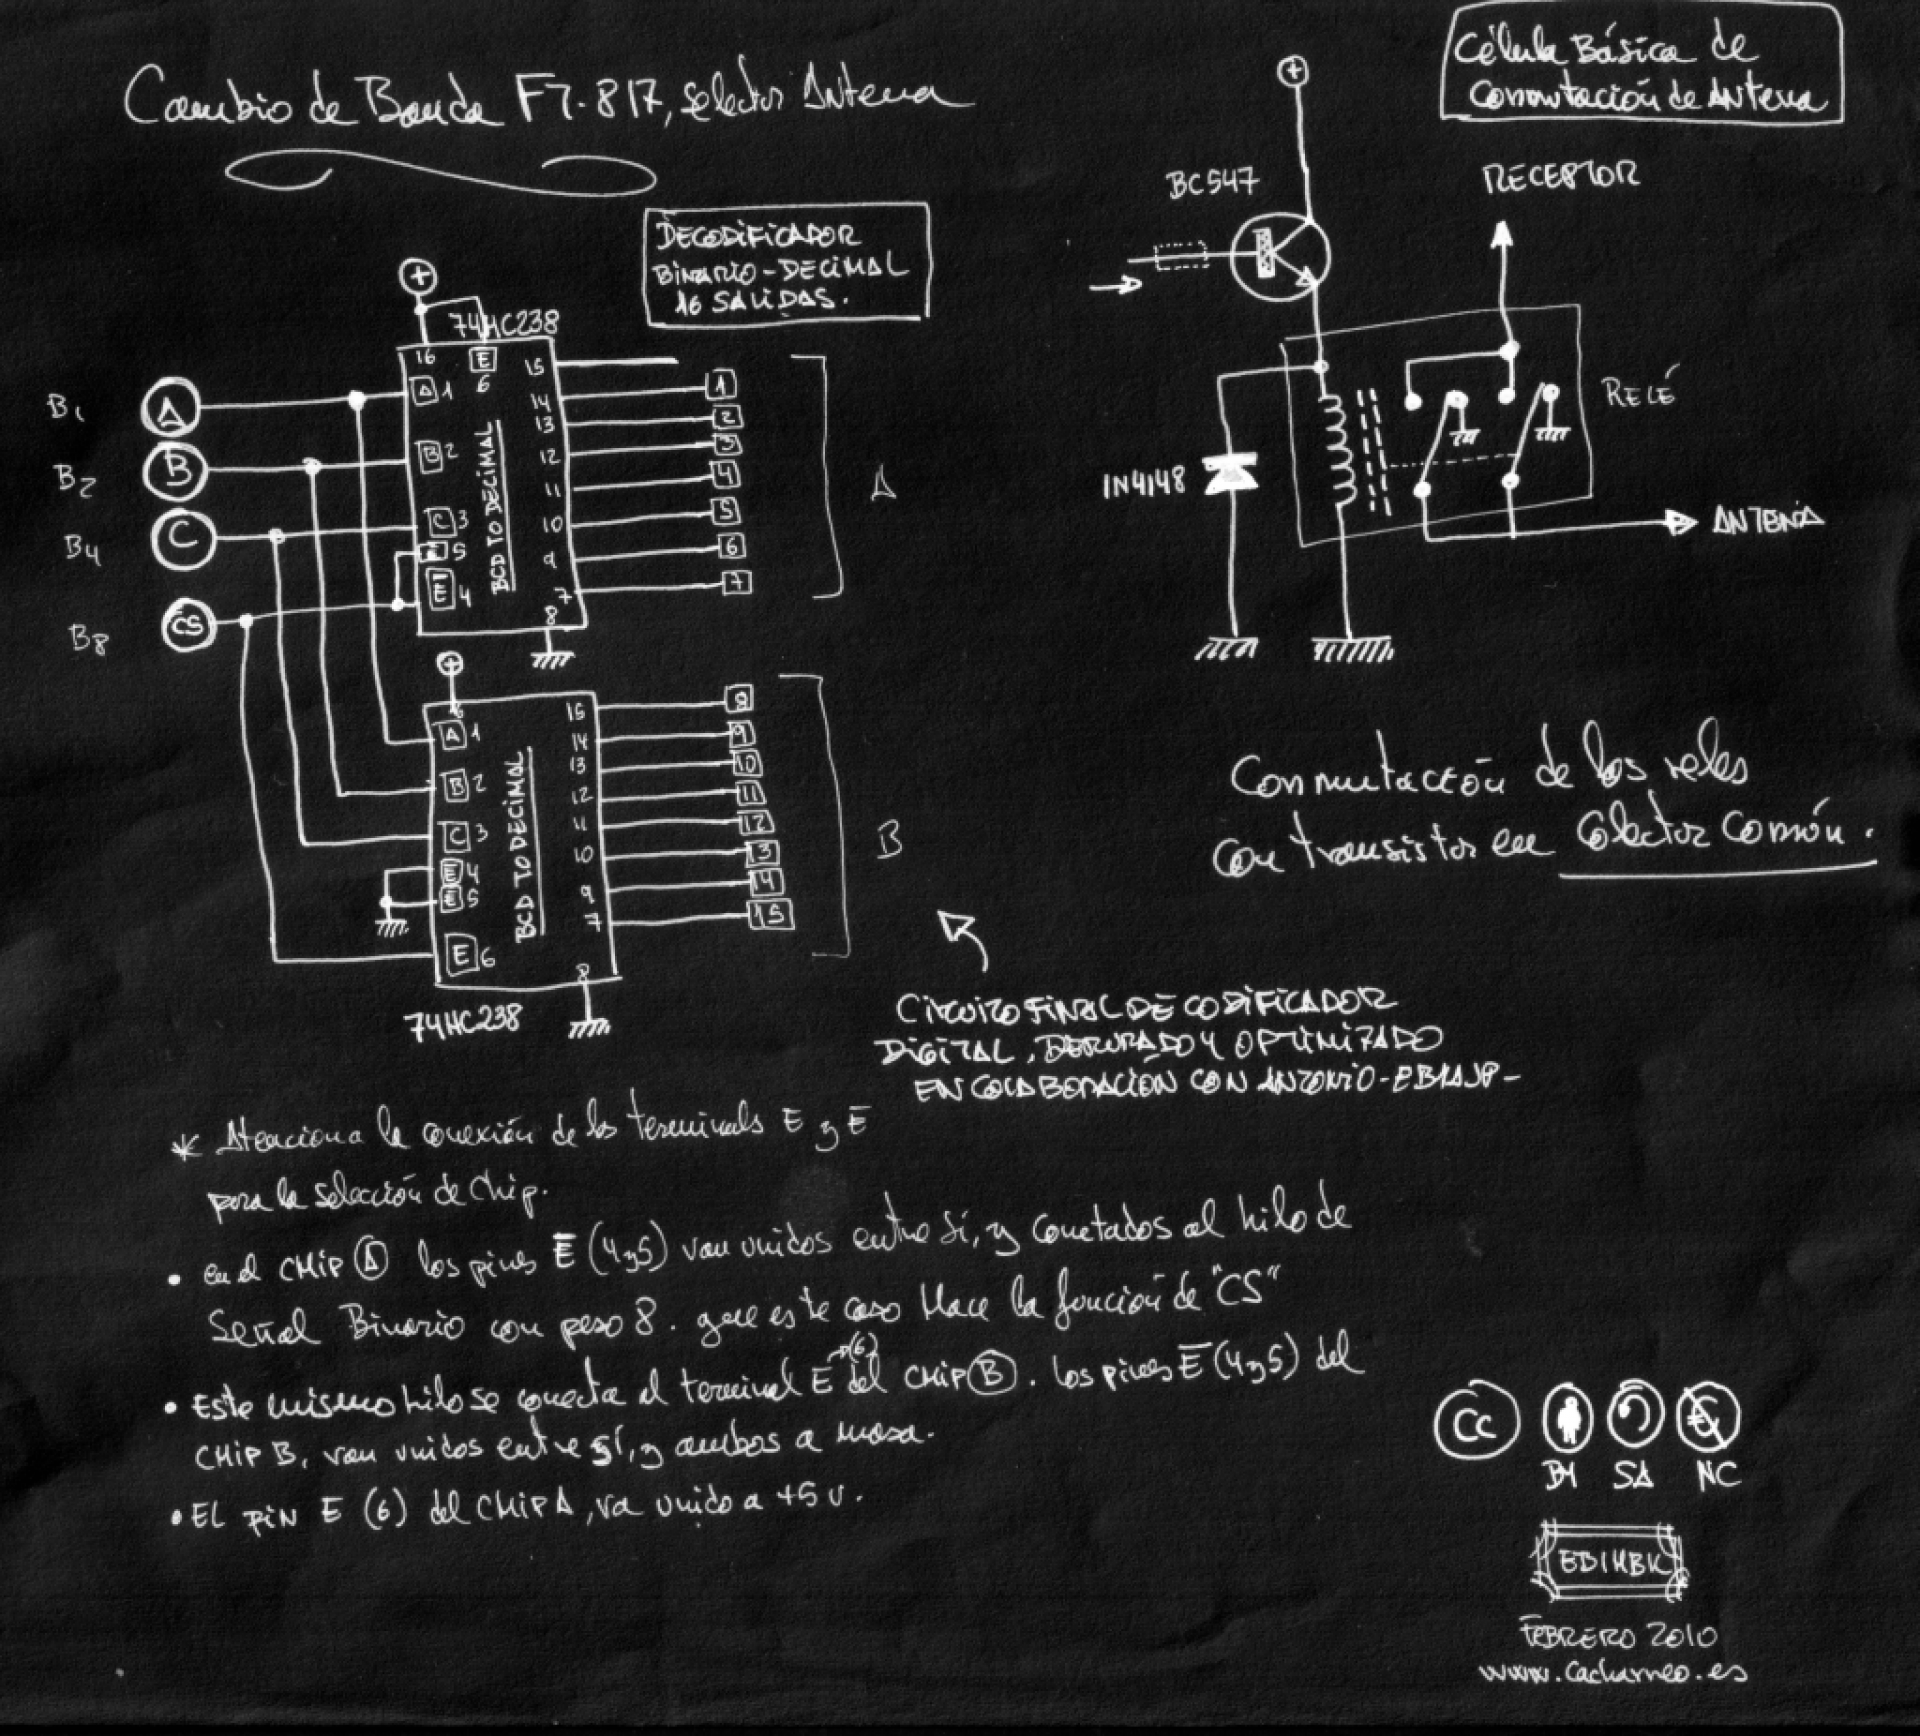 Cambio de Banda FT-817, selector Antena
DECODIFICADOR
BINARIO-DECIMAL
16 SALIDAS.
Célula Básica de
Conmutación de Antena
BC547
RECEPTOR
RELÉ
1N4148
ANTENA
Conmutación de los reles
con transistor en Colector Común.
74HC238
16 E 6
B1 A
B2 B
B4 C
B8 CS
A 1
B 2
C 3
5
E 4
BCD TO DECIMAL
15
14 1
13 2
12 3
11 4
10 5
9 6
7 7
8
A
A 1
B 2
C 3
E 4
E 5
E 6
BCD TO DECIMAL
15 8
14 9
13 10
12 11
11 12
10 13
9 14
7 15
8
B
74HC238
CIRCUITO FINAL DECODIFICADOR
DIGITAL, DEPURADO Y OPTIMIZADO
EN COLABORACIÓN CON ANTONIO
* Atencion a la conexión de los terminales E y Ē
para la selección de chip.
• en el CHIP A los pines Ē (4y5) van unidos entre sí, y conetados al hilo de
Señal Binario con peso 8. que este caso Hace la función de "CS"
• Este mismo hilo se conecta al terminal E (6) del CHIP B. los pines Ē (4y5) del
CHIP B, van unidos entre sí, y ambos a masa.
• EL PIN E (6) del CHIP A, va unido a +5v.
CC
BY SA NC
FEBRERO 2010
www.cacharreo.es